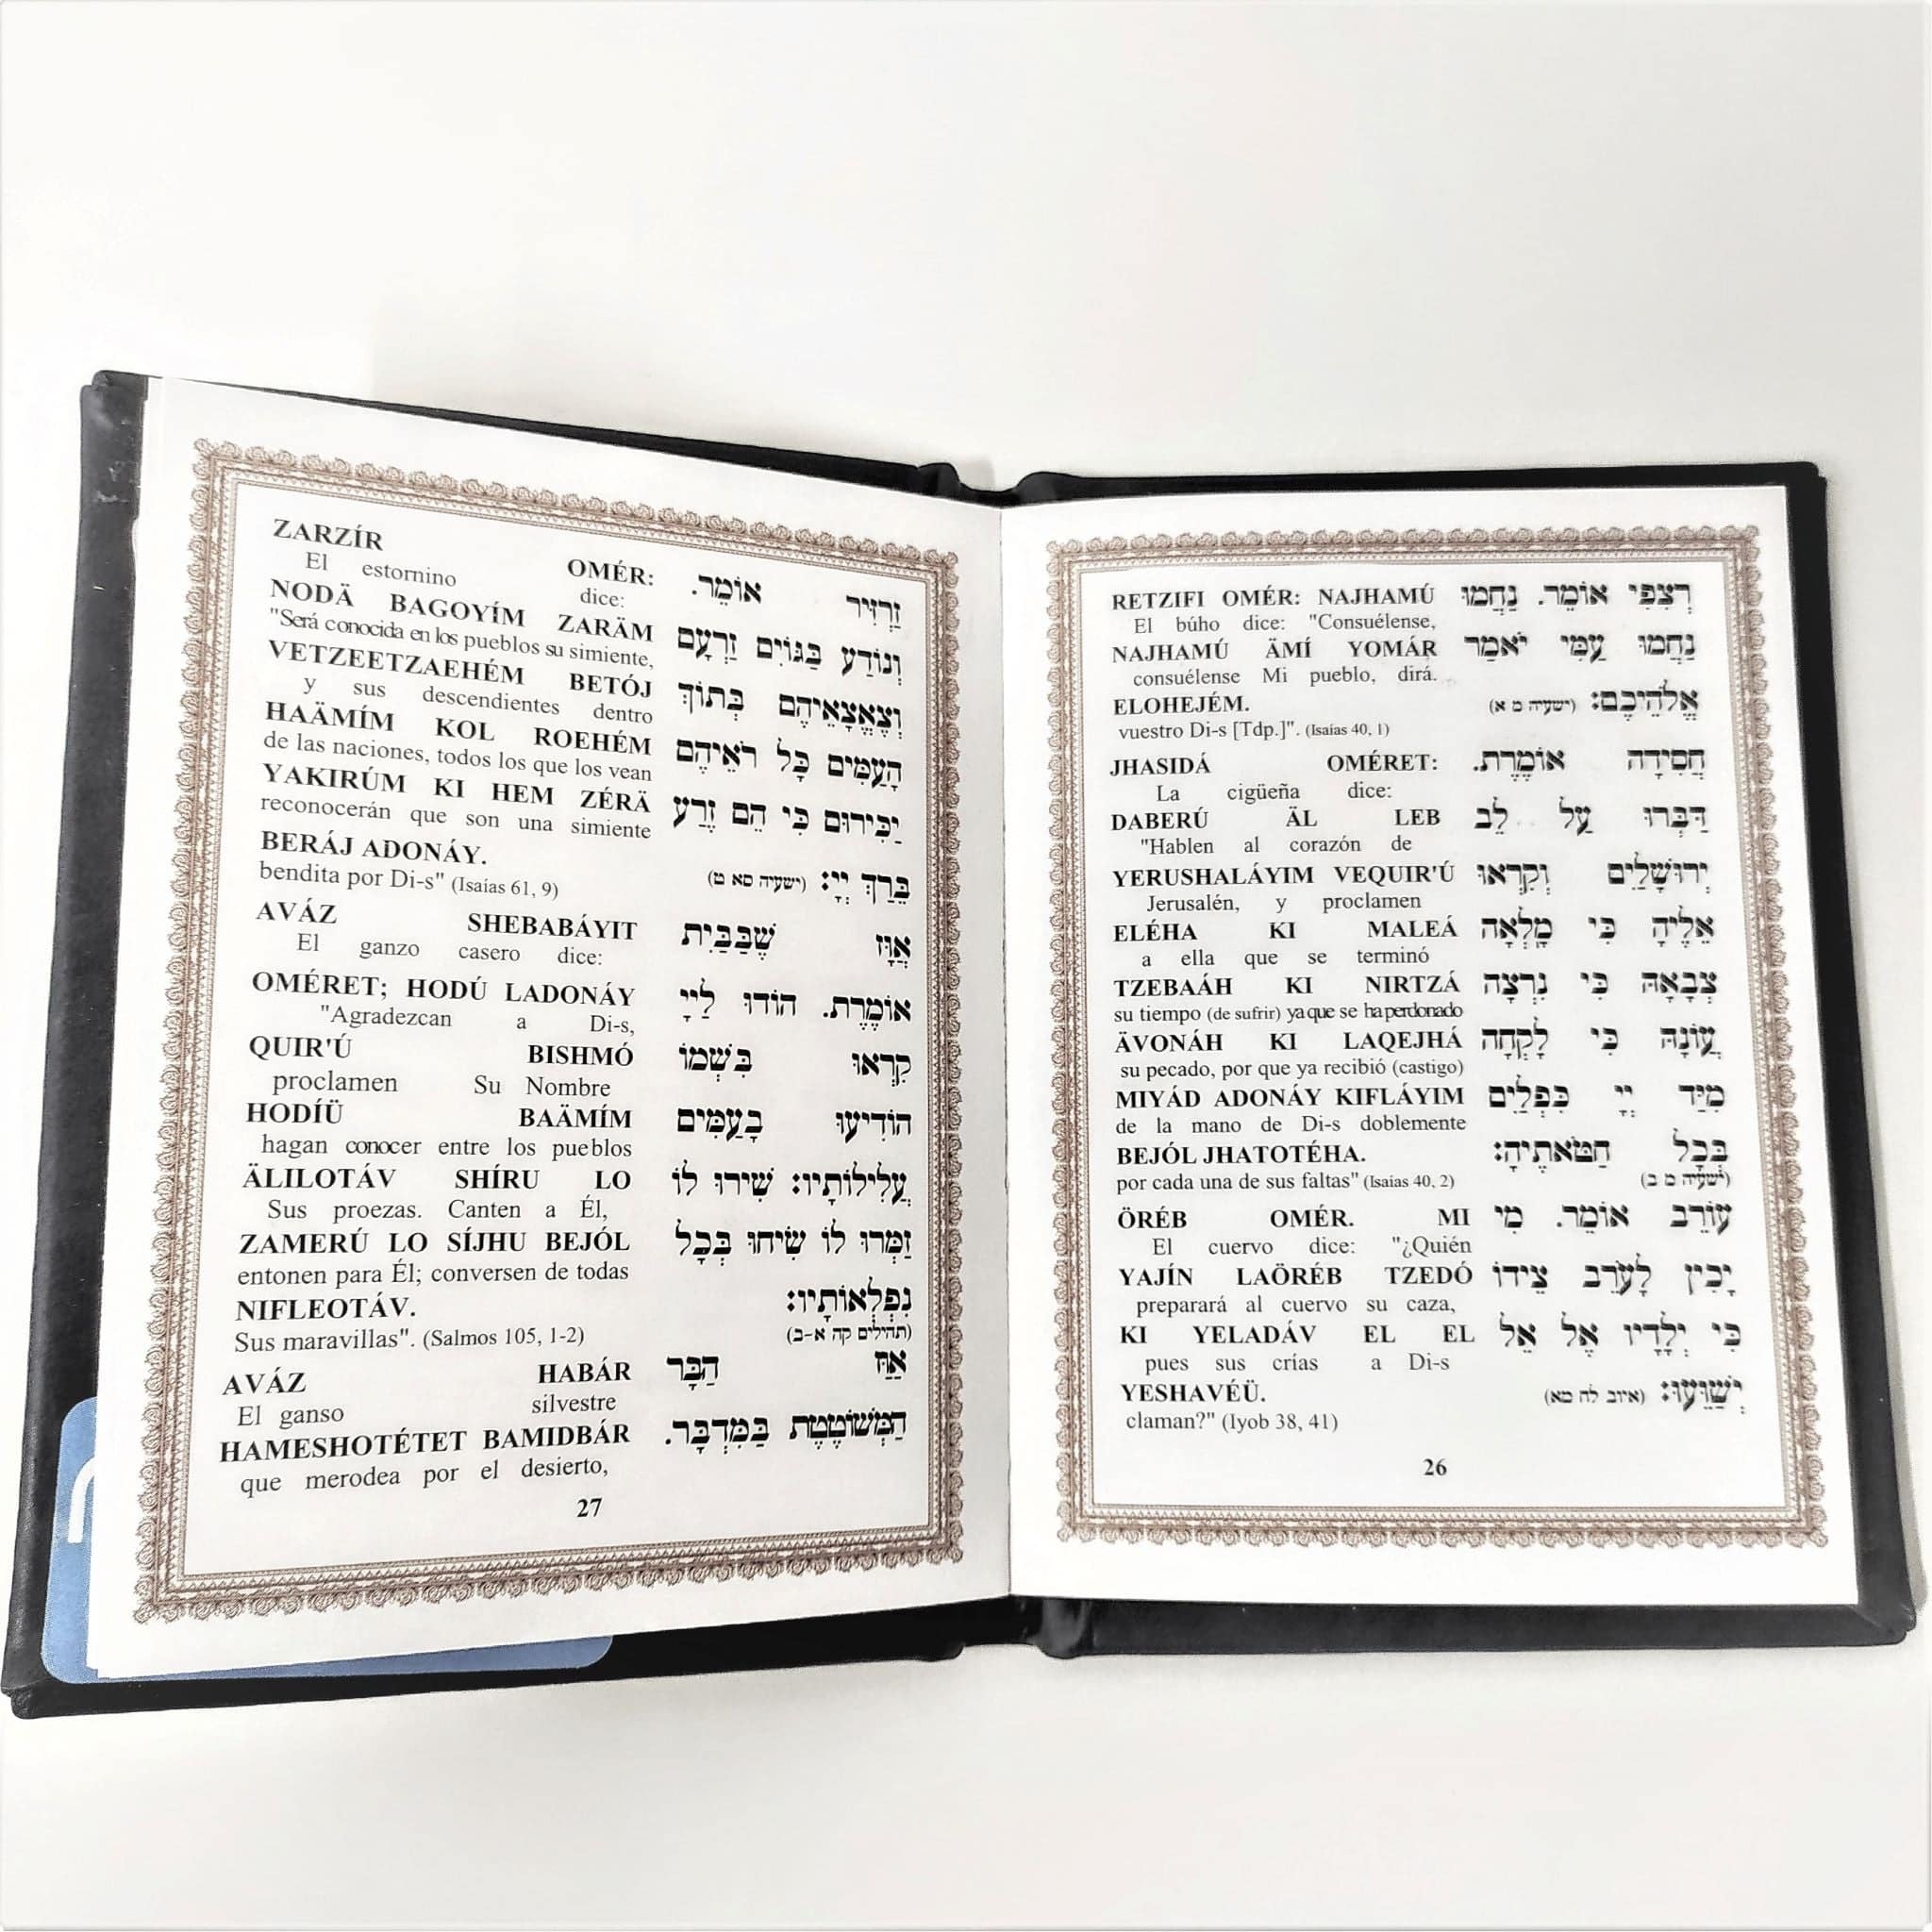 RETZIFI OMÉR: NAJHAMÚ רְצִפִי אוֹמֵר. נַחֲמוּ
El búho dice: "Consuélense,
NAJHAMÚ ÄMÍ YOMÁR נַחֲמוּ עַמִּי יֹאמַר
consuélense Mi pueblo, dirá.
ELOHEJÉM. אֱלֹהֵיכֶם: (ישעיה מ א)
vuestro Di-s [Tdp.]". (Isaías 40, 1)
JHASIDÁ OMÉRET: חֲסִידָה אוֹמֶרֶת.
La cigüeña dice:
DABERÚ ÄL LEB דַּבְּרוּ עַל לֵב
"Hablen al corazón de
YERUSHALÁYIM VEQUIR'Ú יְרוּשָׁלַיִם וְקִרְאוּ
Jerusalén, y proclamen
ELÉHA KI MALEÁ אֵלֶיהָ כִּי מָלְאָה
a ella que se terminó
TZEBAÁH KI NIRTZÁ צְבָאָהּ כִּי נִרְצָה
su tiempo (de sufrir) ya que se ha perdonado
ÄVONÁH KI LAQEJHÁ עֲוֹנָהּ כִּי לָקְחָה
su pecado, por que ya recibió (castigo)
MIYÁD ADONÁY KIFLÁYIM מִיַּד יְיָ כִּפְלַיִם
de la mano de Di-s doblemente
BEJÓL JHATOTÉHA. בְּכָל חַטֹּאתֶיהָ:
por cada una de sus faltas" (Isaías 40, 2) (ישעיה מ ב)
ÖRÉB OMÉR. MI עוֹרֵב אוֹמֵר. מִי
El cuervo dice: "¿Quién
YAJÍN LAÖRÉB TZEDÓ יָכִין לָעֹרֵב צֵידוֹ
preparará al cuervo su caza,
KI YELADÁV EL EL כִּי יְלָדָיו אֶל אֵל
pues sus crías a Di-s
YESHAVÉÜ. יְשַׁוֵּעוּ: (איוב לח מא)
claman?" (Iyob 38, 41)
26
ZARZÍR OMÉR: זַרְזִיר אוֹמֵר.
El estornino dice:
NODÄ BAGOYÍM ZARÄM וְנוֹדַע בַּגּוֹיִם זַרְעָם
"Será conocida en los pueblos su simiente,
VETZEETZAEHÉM BETÓJ וְצֶאֱצָאֵיהֶם בְּתוֹךְ
y sus descendientes dentro
HAÄMÍM KOL ROEHÉM הָעַמִּים כָּל רֹאֵיהֶם
de las naciones, todos los que los vean
YAKIRÚM KI HEM ZÉRÄ יַכִּירוּם כִּי הֵם זֶרַע
reconocerán que son una simiente
BERÁJ ADONÁY. בֵּרַךְ יְיָ: (ישעיה סא ט)
bendita por Di-s" (Isaías 61, 9)
AVÁZ SHEBABÁYIT אֲוָּז שֶׁבַּבַּיִת
El ganzo casero dice:
OMÉRET; HODÚ LADONÁY אוֹמֶרֶת. הוֹדוּ לַיְיָ
"Agradezcan a Di-s,
QUIR'Ú BISHMÓ קִרְאוּ בִּשְׁמוֹ
proclamen Su Nombre
HODÍÜ BAÄMÍM הוֹדִיעוּ בָעַמִּים
hagan conocer entre los pueblos
ÄLILOTÁV SHÍRU LO עֲלִילוֹתָיו: שִׁירוּ לוֹ
Sus proezas. Canten a Él,
ZAMERÚ LO SÍJHU BEJÓL זַמְּרוּ לוֹ שִׂיחוּ בְּכָל
entonen para Él; conversen de todas
NIFLEOTÁV. נִפְלְאוֹתָיו:
Sus maravillas". (Salmos 105, 1-2) (תהילים קה א-ב)
AVÁZ HABÁR אַוַּז הַבָּר
El ganso silvestre
HAMESHOTÉTET BAMIDBÁR הַמְּשׁוֹטֶטֶת בַּמִּדְבָּר.
que merodea por el desierto,
27